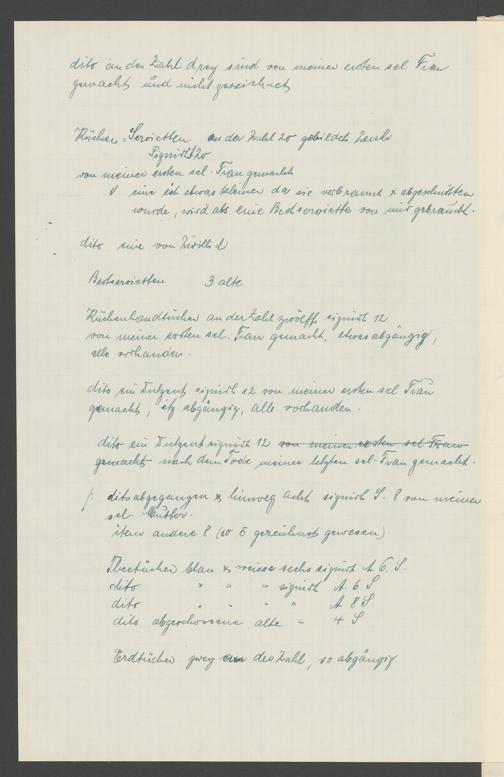 dito an der Zahl drey sind von meiner ersten sel Frau
gemacht und nicht gezeichnet
Küchen=Servietten an der Zahl 20 gebildet
Signirt 20
von meiner ersten sel. Frau gemacht
eine ist etwas kleiner da sie verbrannt & abgeschnitten
wurde, wird als eine Brotserviette von mir gebraucht.
dito eine von Zwillich
Brotservietten 3 alte
Küchenhandtücher an der Zahl zwölff signirt 12
von meiner ersten sel. Frau gemacht, etwas abgängig,
alle vorhanden.
dito ein Dutzent signirt 12 von meiner ersten sel Frau
gemacht, itz abgängig, alle vorhanden.
dito ein Dutzent signirt 12 von meiner ersten sel Frau
gemacht nach dem Tode meiner letzten sel. Frau gemacht.
dito abgegangen & hinweg acht signirt S. 8 von meiner
sel. Mutter.
item andere 8 (so 8 gezeichnet gewesen)
Theetücher blau & weisse sechs signirt A 6. S.
dito " " " signirt A. 6 S
dito " " " " A 8 S
dito abgeschossene alte " 4 S
Erdtücher zwey an der Zahl, so abgängig